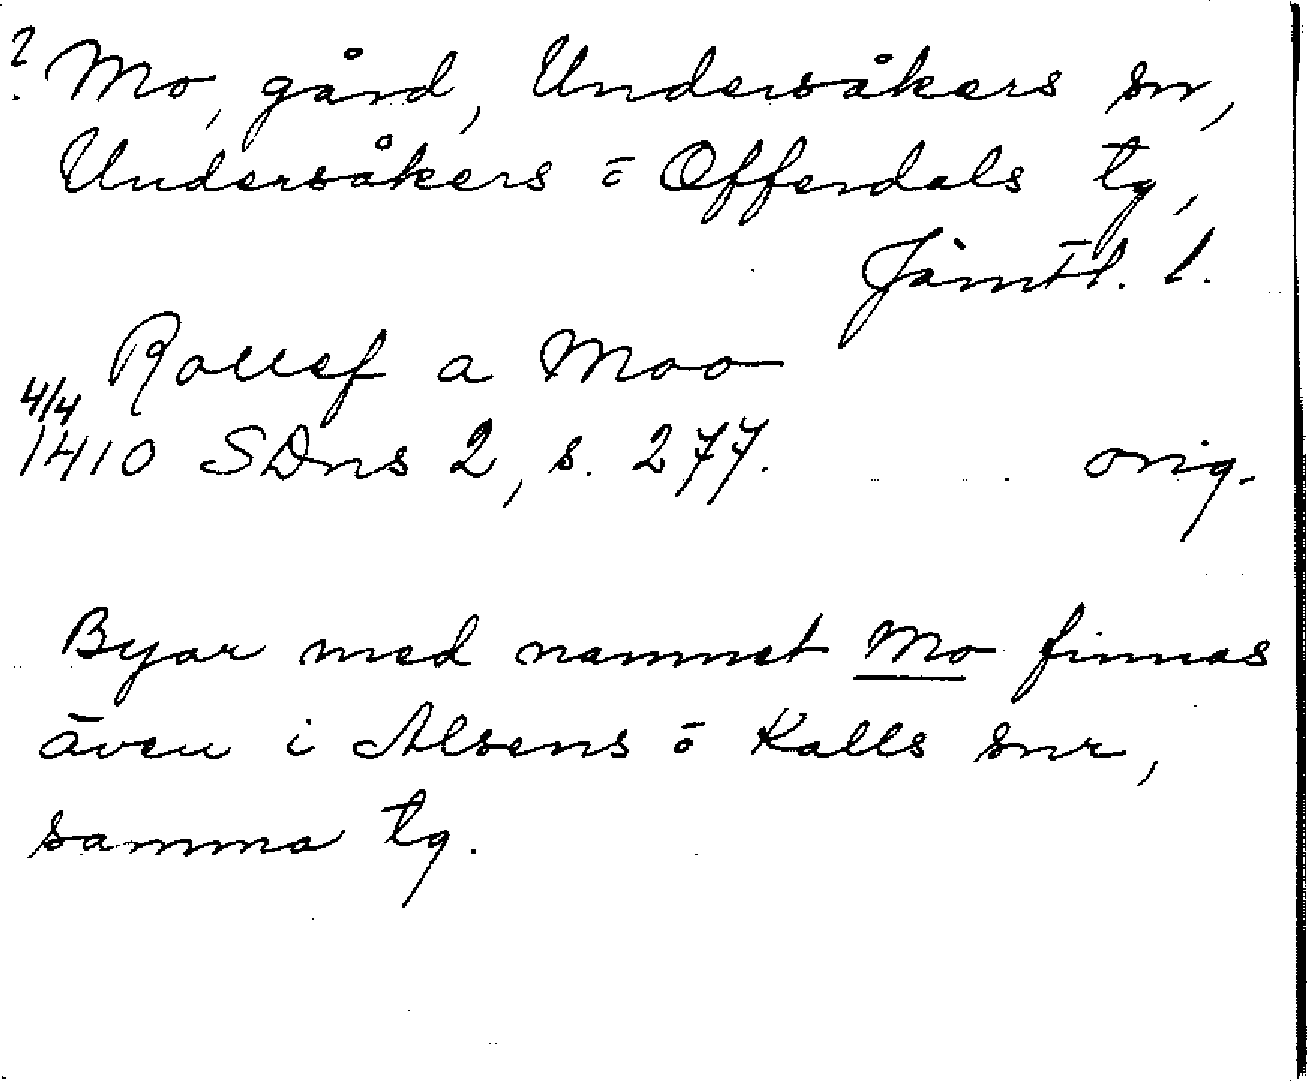 ? Mo, gård, Undersåkers sn,
Undersåkers o Offerdals tg,
Jämtl. l.
Rollef a Moo
4/4
1410 SDns 2, s. 277. orig.
Byar med namnet Mo finnas
även i Alsens o Kalls snr,
samma tg.